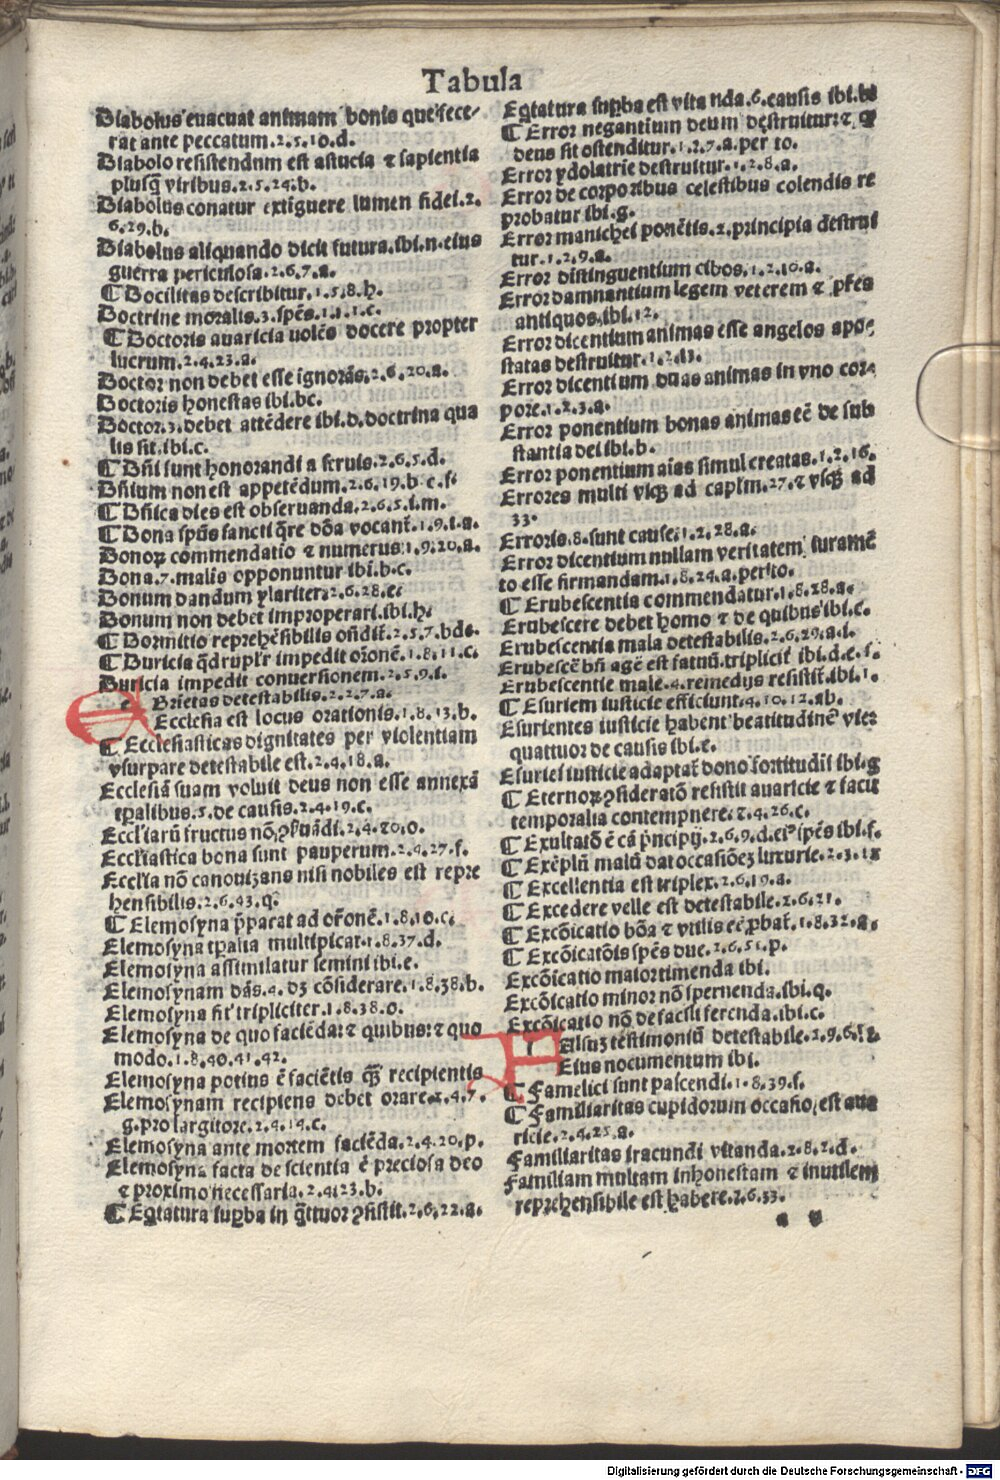 Tabula
Diabolus euacuat animam bonis que fece-
rat ante peccatum.2.5.10.d.
Diabolo resistendum est astucia ⁊ sapientia
plusq̃ viribus.2.5.24.b.
Diabolus conatur extiguere lumen fidei.2.
6.29.b.
Diabolus aliquando dicit futura.ibi.n.eius
guerra periculosa.2.6.7.a.
¶ Docilitas describitur.1.5.8.h.
Doctrine moralis.3.spẽs.1.1.1.c.
¶ Doctoris auaricia volẽs docere propter
lucrum.2.4.23.a.
Doctor non debet esse ignorãs.2.6.20.a.
Doctoris honestas ibi.bc.
Doctor.3.debet attẽdere ibi.d.doctrina qua
lis sit.ibi.c.
¶ Dñi sunt honorandi a seruis.2.6.5.d.
Dñium non est appetẽdum.2.6.19.b c.f
¶ Dñica dies est obseruanda.2.6.5.l.m.
¶ Dona spũs sancti q̃re dõa vocant̃.1.9.1.a.
Donoꝝ commendatio ⁊ numerus.1.9.20.a.
Dona.7.malis opponuntur ibi.b.c.
Donum dandum ylariter.2.6.28.e
Donum non debet improperari.ibi.h.
¶ Dormitio reprehẽsibilis oñdit̃.2.5.7.bde.
¶ Duricia q̃drupl'r impedit orõnẽ.1.8.11.c.
Duricia impedit conuersionem.2.5.9.l.
e Brietas detestabilis.2.2.7.a.
Ecclesia est locus orationis.1.8.13.b.
¶ Ecclesiasticas dignitates per violentiam
vsurpare detestabile est.2.4.18.a.
Ecclesiã suam voluit deus non esse annexã
tꝑalibus.5.de causis.2.4.19.c.
Eccl'iarũ fructus nõ
Eccl'iastica bona sunt pauperum.2.4.27.f.
Eccl'ia nõ canonizans nisi nobiles est repre
hensibilis.2.6.43.q.
¶ Elemosyna p̃parat ad orõnẽ.1.8.10.c.
Elemosyna tꝑalia multiplicat.1.8.37.d.
Elemosyna assimilatur semini ibi.e.
Elemosynam dãs.4.dꝫ cõsiderare.1.8.38.b.
Elemosyna fit tripliciter.1.8.38.o.
Elemosyna de quo faciẽda:⁊ quibus:⁊ quo
modo.1.8.40.41.42.
Elemosyna potius ẽ faciẽtis q̃ꝫ recipientis
Elemosynam recipiens debet orare.2.4.7.
g.pro largitore.2.4.14.c.
Elemosyna ante mortem faciẽda.2.4.20.p.
Elemosyna facta de scientia ẽ preciosa deo
⁊ proximo necessaria.2.4.23.b.
¶ Eq̃tatura supba in q̃ttuor ꝯsistit.2.6.22.a.
Eq̃tatura supba est vitanda.6.causis ibi.
¶ Error negantium deum destruitur:⁊ ꝙ
deus sit ostenditur.1.2.7.a.per to.
Error ydolatrie destruitur.1.2.8.a.
Error de corporibus celestibus colendis re
probatur ibi.g.
Error manichei ponẽtis.2.principia destrui
tur.1.2.9.a.
Error distinguentium cibos.1.2.10.a.
Error damnantium legem veterem ⁊ pr̃es
antiquos.ibi.12.
Error dicentium animas esse angelos apo-
statas destruitur.1.2.13.
Error dicentium duas animas in vno cor-
pore.1.2.3.a.
Error ponentium bonas animas eẽ de sub
stantia dei ibi.b.
Error ponentium aias simul creatas.1.2.16.
Errores multi vsq̃ ad caplm.27.⁊ vsq̃ ad
33.
Erroris.8.sunt cause.1.2.28.a.
Error dicentium nullam veritatem iuramẽ
to esse firmandam.1.8.24.a.per to.
¶ Erubescentia commendatur.1.8.28.a.
Erubescere debet homo ⁊ de quibus ibi.c.
Erubescentia mala detestabilis.2.6.29.a.i.
Erubescẽ bñ agẽ est fatuũ.triplicit̃ ibi.d.e.f.
Erubescentie male.4.remedijs resistit̃.ibi.i.
¶ Esuriem iusticie efficiunt.4.10.12.ab.
Esurientes iusticie habent beatitudinẽ viꝫ
quattuor de causis ibi.e.
Esuriei iusticie adaptat̃ dono fortitudĩs ibi.g
¶ Eternoꝝ ꝯsideratõ resistit auaricie ⁊ facit
temporalia contempnere.2.4.26.c.
¶ Exultatõ ẽ cã p̃ncipij.2.6.9.d.ei⁹ spẽs ibi.f.
¶ Exẽplũ malũ dat occasiõeꝫ luxurie.2.3.12
¶ Excellentia est triplex.2.6.19.a.
¶ Excedere velle est detestabile.2.6.21.
¶ Excõicatio bõa ⁊ vtilis eẽ ꝓbat̃.1.8.32.a.
¶ Excõicatõis spẽs due.2.6.51.p.
Excõicatio maior timenda ibi.
Excõicatio minor nõ spernenda.ibi.q.
Excõicatio nõ de facili ferenda.ibi.c.
f Alsuꝫ testimoniũ detestabile.2.9.6.
Eius nocumentum ibi.
¶ Famelici sunt pascendi.1.8.39.f.
¶ Familiaritas cupidorum occasio est aua
ricie.2.4.25.a.
Familiaritas iracundi vitanda.2.8.2.d.
Familiam multam inhonestam ⁊ inutilem
reprehensibile est habere.2.6.33.
Digitalisierung gefördert durch die Deutsche Forschungsgemeinschaft - DFG